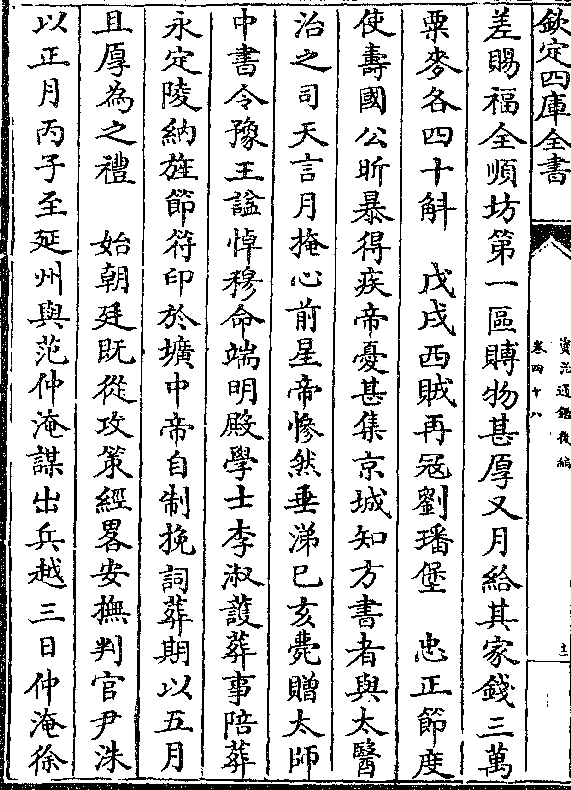 欽定四庫全書
資治通鑑後編
卷四十八
十二
差賜福全順坊第一區賻物甚厚又月給其家錢三萬
粟麥各四十斛　戊戌西賊再冦劉璠堡　忠正節度
使壽國公昕暴得疾帝憂甚集京城知方書者與太醫
治之司天言月掩心前星帝慘然垂涕已亥薨贈太師
中書令豫王諡悼穆命端明殿學士李淑䕶葬事陪葬
永定陵納旌節符印於壙中帝自制挽詞葬期以五月
且厚為之禮　始朝廷既從攻策經畧安撫判官尹洙
以正月丙子至延州與范仲淹謀出兵越三日仲淹徐